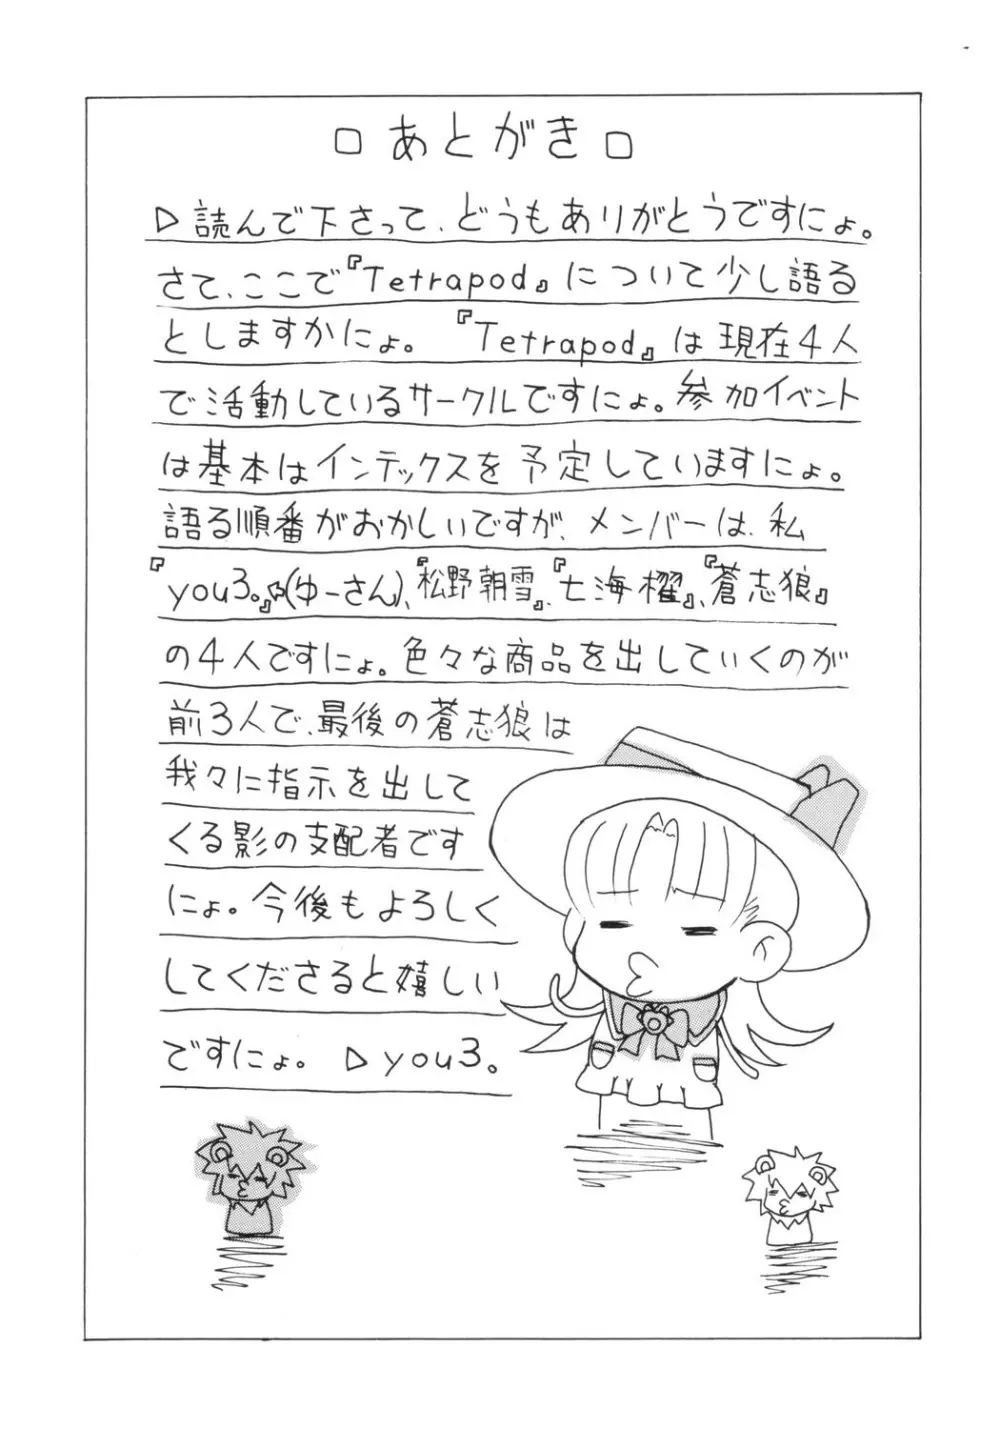 □ あとがき □
▷読んで下さって、どうもありがとうですにょ。
さて、ここで『Tetrapod』について少し語る
としますかにょ。『Tetrapod』は現在4人
で活動しているサークルですにょ。参加イベント
は基本はインデックスを予定していますにょ。
語る順番がおかしいですが、メンバーは、私
『you3。』(ゆーさん)、『松野朝雪』、『七海櫂』、『蒼志狼』
の4人ですにょ。色々な商品を出していくのが
前3人で、最後の蒼志狼は
我々に指示を出して
くる影の支配者です
にょ。今後もよろしく
してくださると嬉しい
ですにょ。 ▷you3。